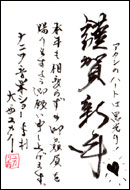 アタシのハートは黒光り♡
謹賀新年
本年も相変わらず御贔屓を
賜りますよう御願い申し上げます。
ナニワ音楽ショー主村
大西ユカリ